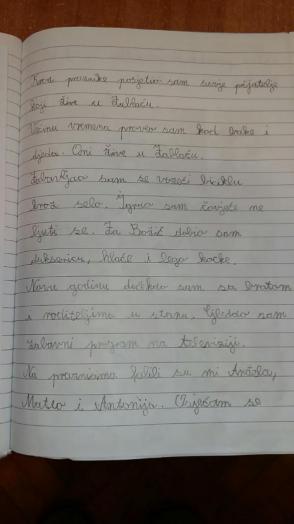 Kroz praznike posjetio sam svoje prijatelje
koji žive u Žabljaču.
Većinu vremena proveo sam kod bake i
djeda. Oni žive u Žabljaču.
Zabavljao sam se vozeći biciklu
kroz selo. Igrao sam čovječe ne
ljuti se. Za Božić dobio sam
duksericu, hlače i lego kocke.
Novu godinu dočekao sam sa bratom
i roditeljima u stanu. Gledao sam
zabavni program na televiziji.
Na praznicima falili su mi Anđela,
Matteo i Antonija. Osjećam se